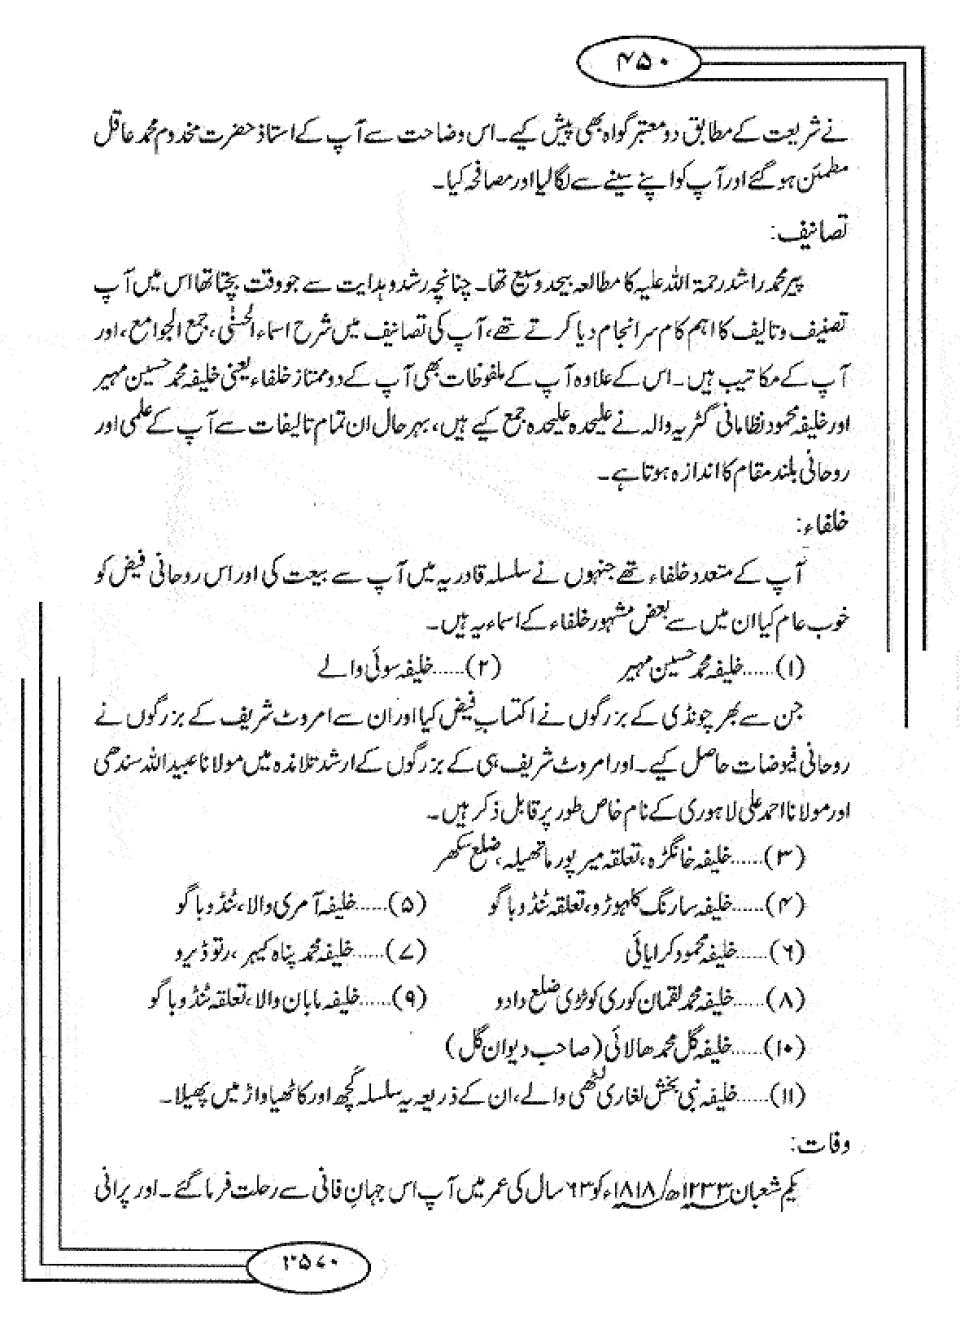 ۴۵۰
نے شریعت کے مطابق دو معتبر گواہ بھی پیش کیے۔ اس وضاحت سے آپ کے استاذ حضرت مخدوم محمد عاقل
مطمئن ہو گئے اور آپ کو اپنے سینے سے لگا لیا اور مصافحہ کیا۔
تصانیف:
پیر محمد راشد رحمۃ اللہ علیہ کا مطالعہ بیحد وسیع تھا۔ چنانچہ رشد و ہدایت سے جو وقت بچتا تھا اس میں آپ
تصنیف و تالیف کا اہم کام سر انجام دیا کرتے تھے، آپ کی تصانیف میں شرح اسماء الحسنٰی، جمع الجوامع، اور
آپ کے مکاتیب ہیں۔ اس کے علاوہ آپ کے ملفوظات بھی آپ کے دو ممتاز خلفاء یعنی خلیفہ محمد حسین مہیر
اور خلیفہ محمود نظامانی گٹریہ والہ نے علیحدہ علیحدہ جمع کیے ہیں، بہر حال ان تمام تالیفات سے آپ کے علمی اور
روحانی بلند مقام کا اندازہ ہوتا ہے۔
خلفاء:
آپ کے متعدد خلفاء تھے جنہوں نے سلسلہ قادریہ میں آپ سے بیعت کی اور اس روحانی فیض کو
خوب عام کیا ان میں سے بعض مشہور خلفاء کے اسماء یہ ہیں۔
(۱)......خلیفہ محمد حسین مہیر (۲)......خلیفہ سوئی والے
جن سے بھر چونڈی کے بزرگوں نے اکتسابِ فیض کیا اور ان سے امروٹ شریف کے بزرگوں نے
روحانی فیوضات حاصل کیے۔ اور امروٹ شریف ہی کے بزرگوں کے ارشد تلامذہ میں مولانا عبید اللہ سندھی
اور مولانا احمد علی لاہوری کے نام خاص طور پر قابل ذکر ہیں۔
(۳)......خلیفہ خانگڑہ، تعلقہ میرپور ماتھیلہ، ضلع سکھر
(۴)......خلیفہ سارنگ کلہوڑو، تعلقہ ٹنڈو باگو (۵)......خلیفہ آمری والا، ٹنڈو باگو
(۶)......خلیفہ محمود کرایائی (۷)......خلیفہ محمد پناہ کیہر، رتو ڈیرو
(۸)......خلیفہ محمد لقمان کوری کوٹڑی ضلع دادو (۹)......خلیفہ مابان والا، تعلقہ ٹنڈو باگو
(۱۰)......خلیفہ گل محمد ھالائی (صاحب دیوان گل)
(۱۱)......خلیفہ نبی بخش لغاری لٹھی والے، ان کے ذریعہ یہ سلسلہ کَچھ اور کاٹھیاواڑ میں پھیلا۔
وفات:
یکم شعبان ۱۲۳۳ھ/۱۸۱۸ء کو ۶۳ سال کی عمر میں آپ اس جہانِ فانی سے رحلت فرما گئے۔ اور پرانی
۳۵۷۰